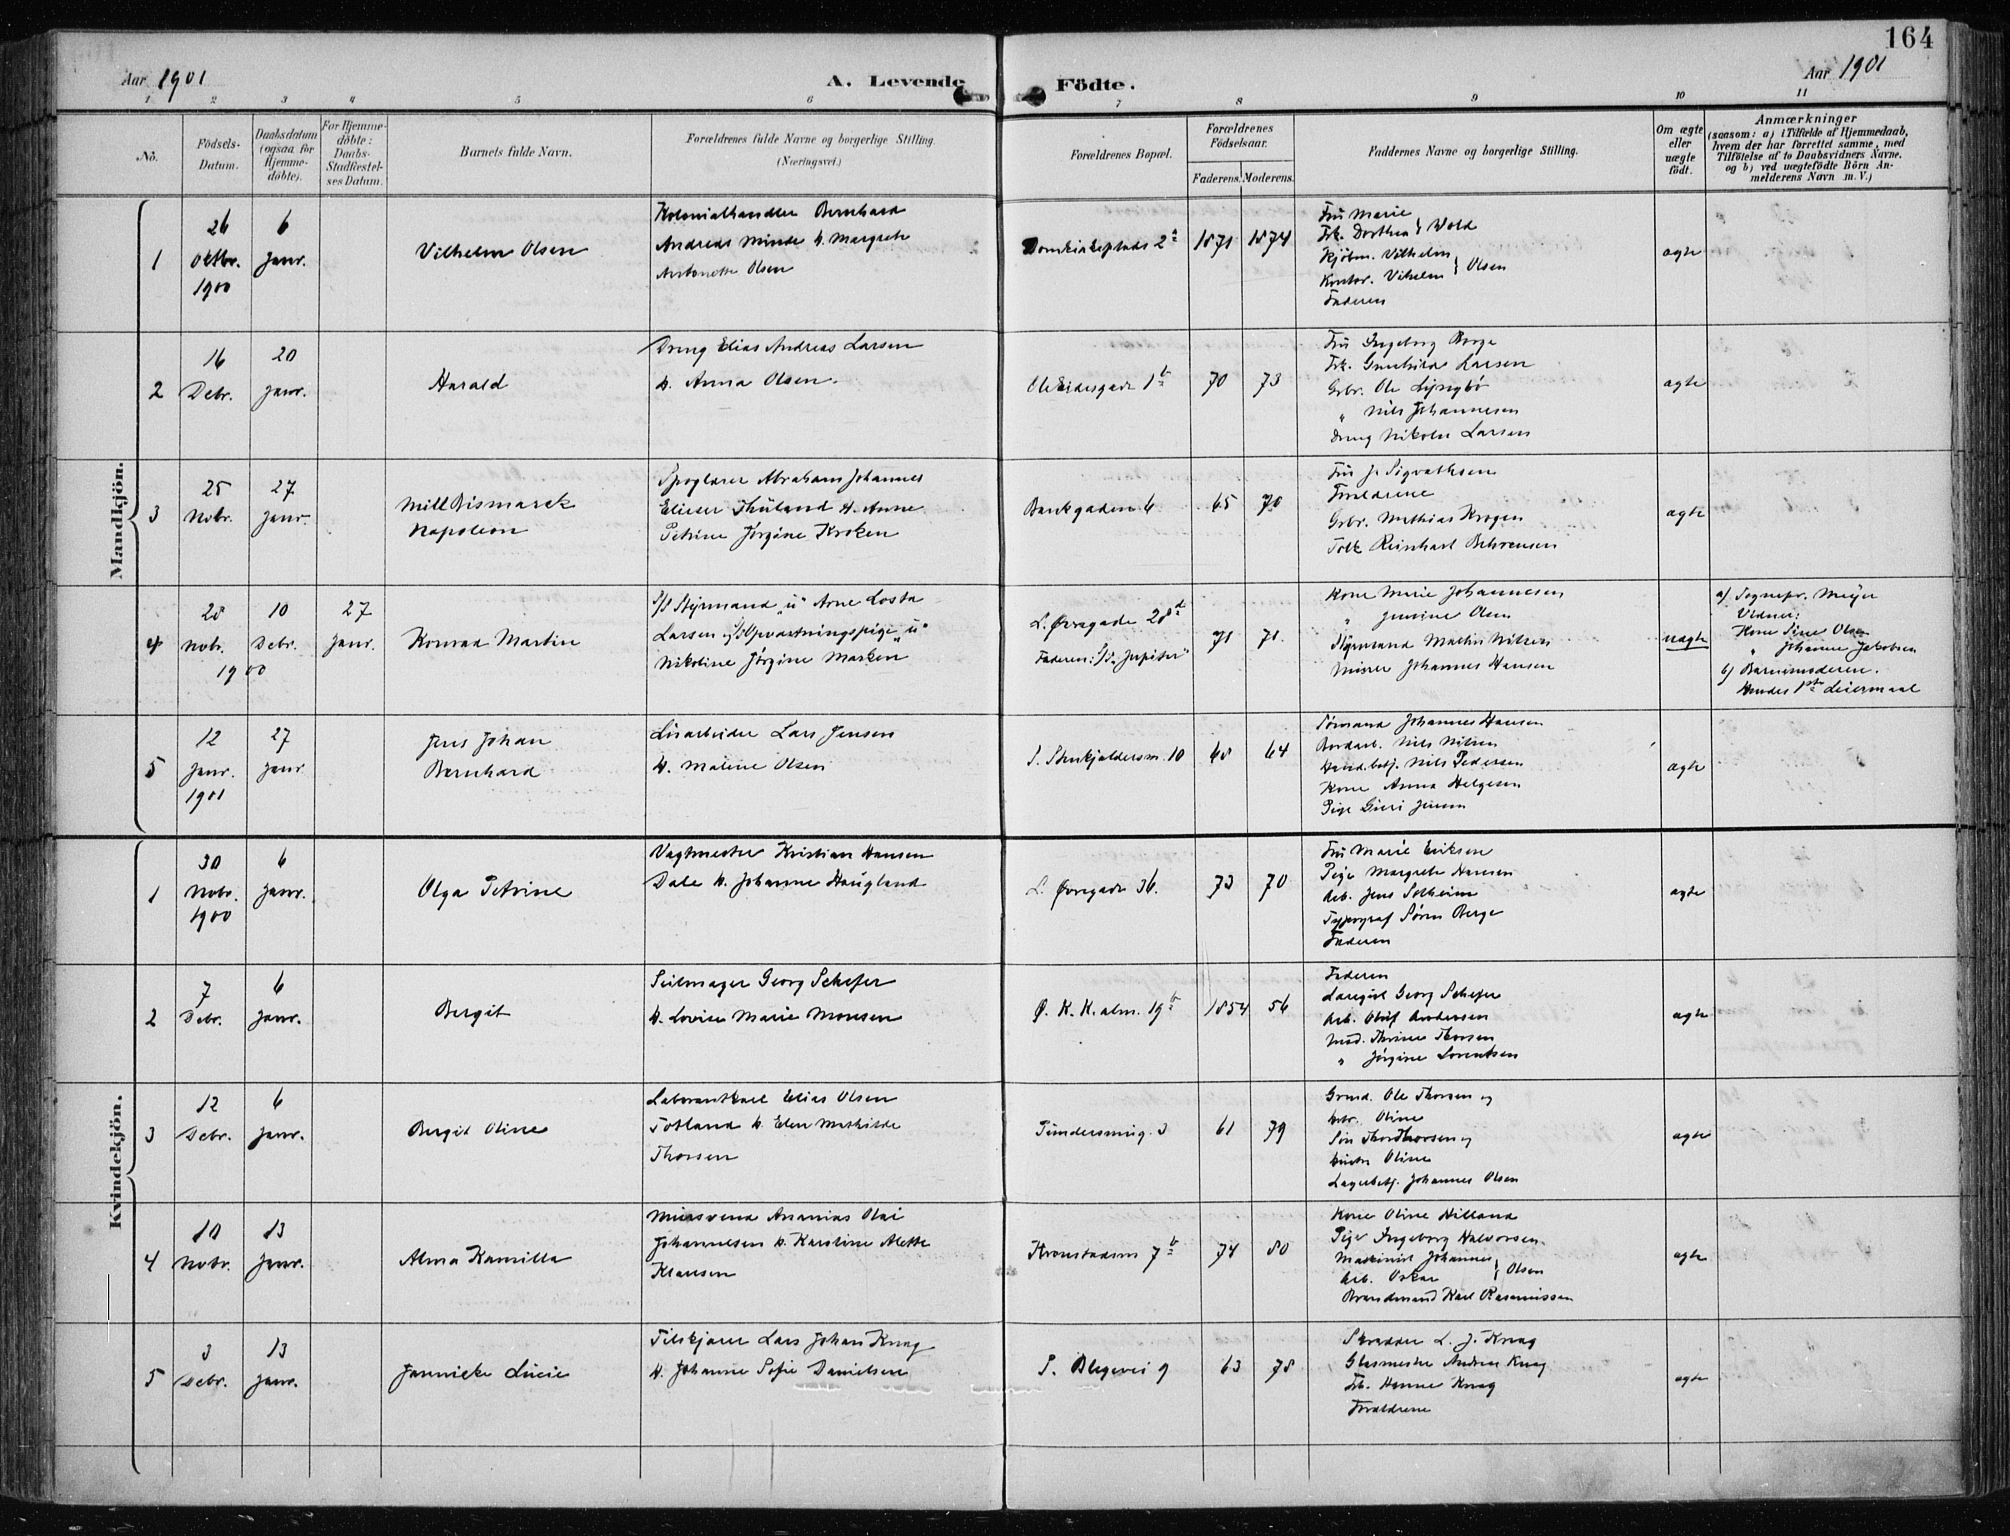 164
Aar 1901
A. Levende Födte.
Aar 1901
1 2 3 4 5 6 7 8 9 10 11
No.
Födsels-Datum.
Daabsdatum (ogsaa for Hjemme-döbte).
For Hjemme-döbte: Daabs-Stadfæstel-ses Datum.
Barnets fulde Navn.
Forældrenes fulde Navne og borgerlige Stilling.
(Næringsvei.)
Forældrenes Bopæl.
Forældrenes Födselsaar.
Faderens. Moderens.
Faddernes Navne og borgerlige Stilling.
Om ægte eller uægte födt.
Anmærkninger
(saasom: a) i Tilfælde af Hjemmedaab,
hvem der har forrettet samme, med
Tilföielse af to Daabsvidners Navne.
og b) ved uægtefödte Börn An-
melderens Navn m. V.)
Mandkjön.
1
26 Oktbr. 1900
6 Janr.
Vilhelm Olsen
Kolonialhandler Bernhard
Andreas Minde H. Margrete
Antonette Olsen
Domkirkeplads 2 a
1871 1874
Fru Marie
Frk. Dorthea } Wold
Kjøbm. Vilhelm
Kontor. Vilhelm } Olsen
Faderen
ægte
2
16 Debr.
20 Janr.
Harald
Dreng Elias Andreas Larsen
H. Anna Olsen.
Ole Irgensgade 1 b
70 73
Fru Ingeborg Borge
Frk. Gunhilda Larsen
Grbr. Ole Lyngbø
" Nils Johannesen
Dreng Nikolai Larsen
ægte
3
25 Nobr.
27 Janr.
Mill Bismarck
Napoleon
Spoglærer Abraham Johannes
Elieser Thuland H. Anne
Petrine Jørgine Kroken
Bankgaden 6
65 70
Fru J. Sigvathsen
Forældrene
Grbr. Mathias Krogen
Tolk Reinhart Behrensen
ægte
4
28 Nobr. 1900
10 Debr.
27 Janr.
Konrad Martin
S/S Styrmand "u" Arne Losta
Larsen og Opvartningspige "u"
Nikoline Jørgine Marken
L. Øvregade 28 d
Faderen: S/S "Jupiter"
71 71.
Kone Marie Johannesen
" Jensine Olsen
Styrmand Mathis Nilsen
Murer Johannes Hansen
uægte
a) Sognepr. Meyer
Vidner:
Kone Sine Olsen
" Johanne Jakobsen
b) Barnemoderen.
Hendes 1ste Leiermaal
5
12 Janr. 1901
27 Janr
Jens Johan
Bernhard
Løsarbeider Lars Jensen
H. Maline Olsen
S. Stenkjeldersm. 10
68 64
Sømand Johannes Hansen
Bordarb. Nils Nilsen
Hand.betj. Nils Pedersen
Kone Anna Helgesen
Pige Guri Jensen
ægte
Kvindekjön.
1
30 Nobr. 1900
6 Janr.
Olga Petrine
Vagtmester Kristian Hansen
Dale H. Johanne Haugland
L. Øvregade 36.
73 70
Fru Marie Eriksen
Pige Margrete Hansen
Arb. Jens Solheim
Typograf Søren Berge
Faderen
ægte
2
7 Debr.
6 Janr.
Bergit
Seilmager Georg Schefer
H. Lovise Marie Monsen
Ø. K. K. alm. 19 b
1854 56
Faderen
Læregut Georg Schefer
Arb. Oluf Andersen
Mad. Thrine Thorsen
" Jørgine Lorentsen
ægte
3
12 Debr.
6 Janr.
Bergit Oline
Laborantkarl Elias Olsen
Totland H. Elen Mathilde
Thorsen
Tundersmug. 3
61 79
Grmd. Ole Thorsen og
Hstr. Oline
Søn Thor Thorsen og
Hustr Oline
Lagerbetj. Johannes Olsen
ægte
4
10 Nobr.
13 Janr.
Alma Kamilla
Mursvend Ananias Olai
Johannesen H. Karoline Alette
Klausen
Kronstadsm 7 b
74 80
Kone Oline Hilland
Pige Ingeborg Halvorsen
Maskinist Johannes
Arb. Oskar } Olsen
Brandmand Karl Rasmussen
ægte
5
3 Debr.
13 Janr.
Jannicke Lucie
Tilskjærer Lars Johan Krag
H. Johanne Sofie Danielsen
S. Blegevei 9
63 78
Skrædder L. J. Krag
Glasmester Andreas Krag
Frk. Hanne Krag
Forældrene
ægte